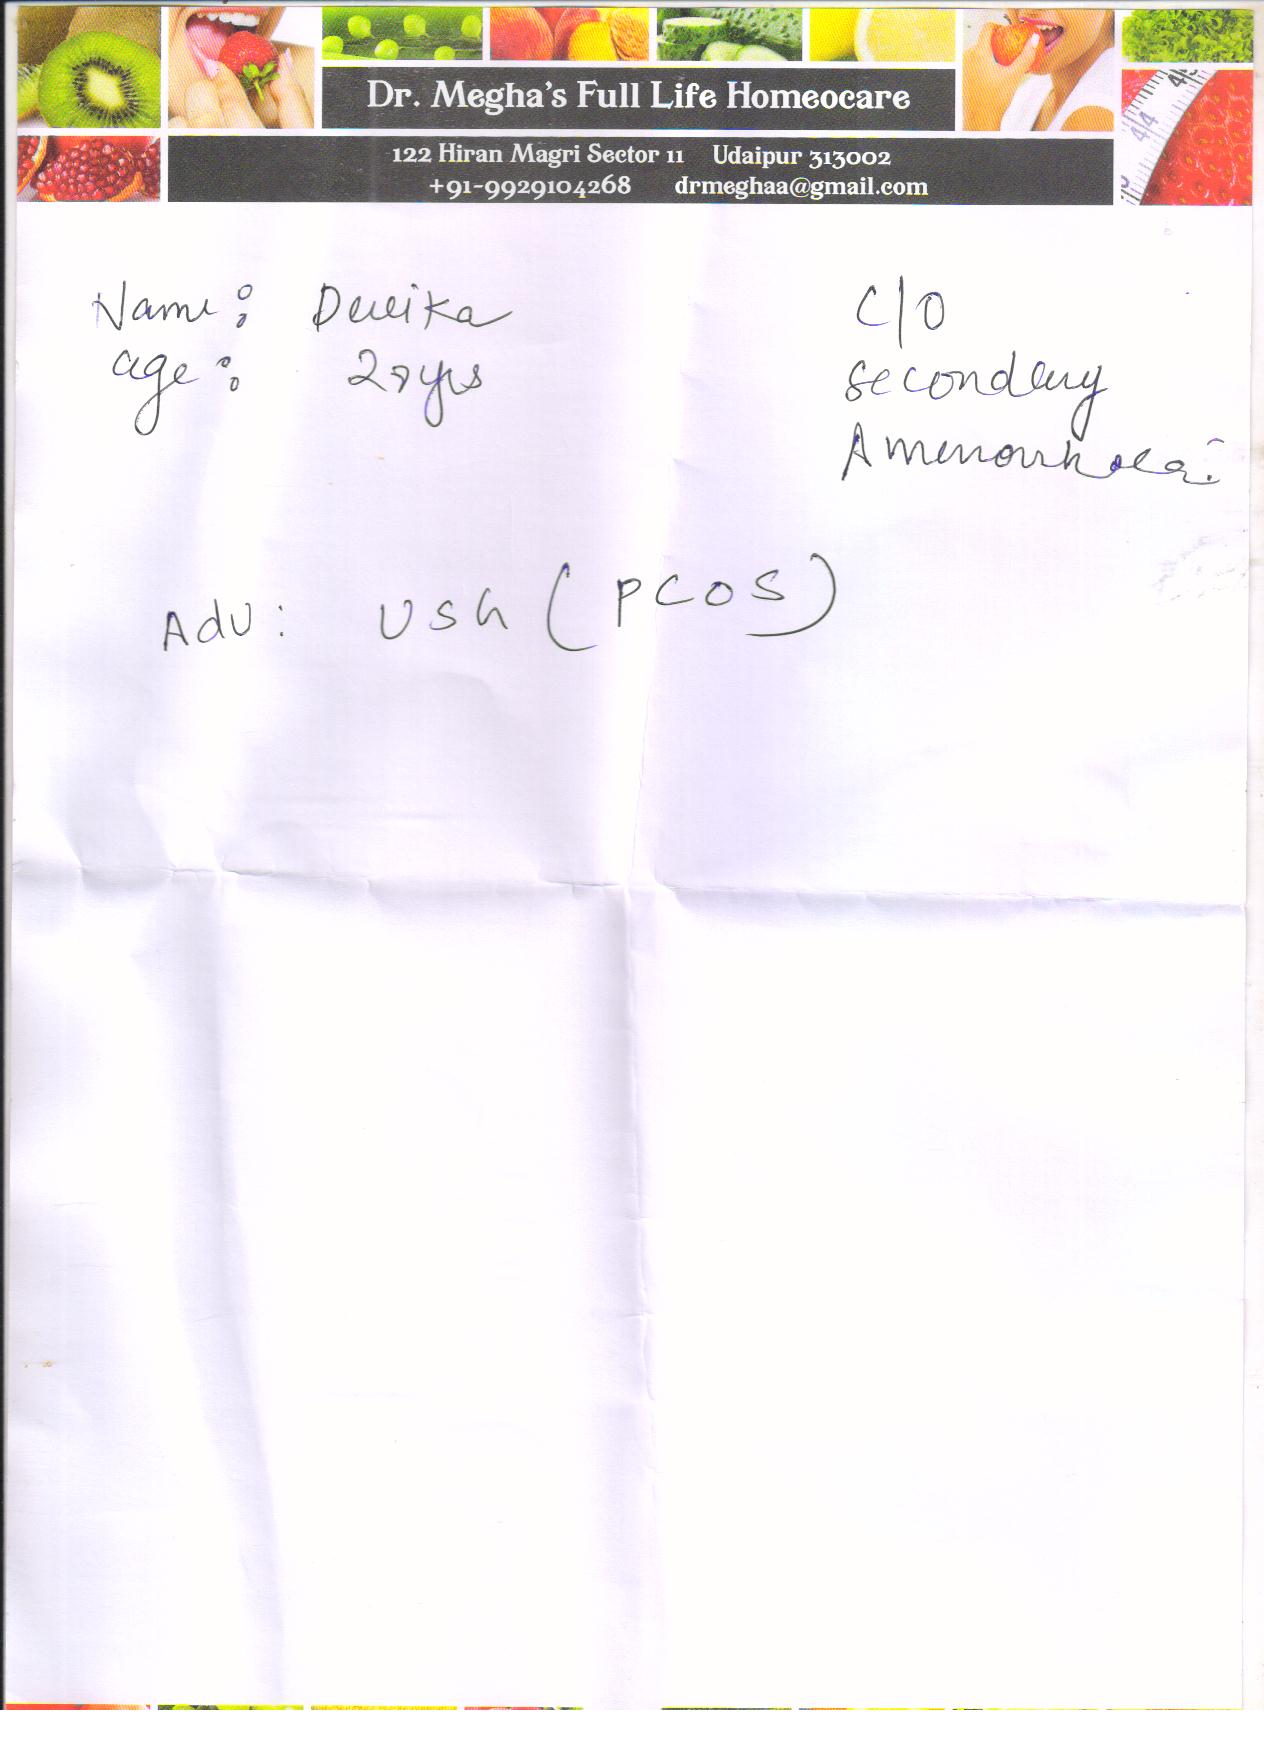 Dr. Megha's Full Life Homeocare
122 Hiran Magri Sector 11 Udaipur 313002
+91-9929104268 drmeghaa@gmail.com
Name: Devika
age: yrs
C/O
secondary
Amenorrhoea:
Adv: USG (PCOS)
44